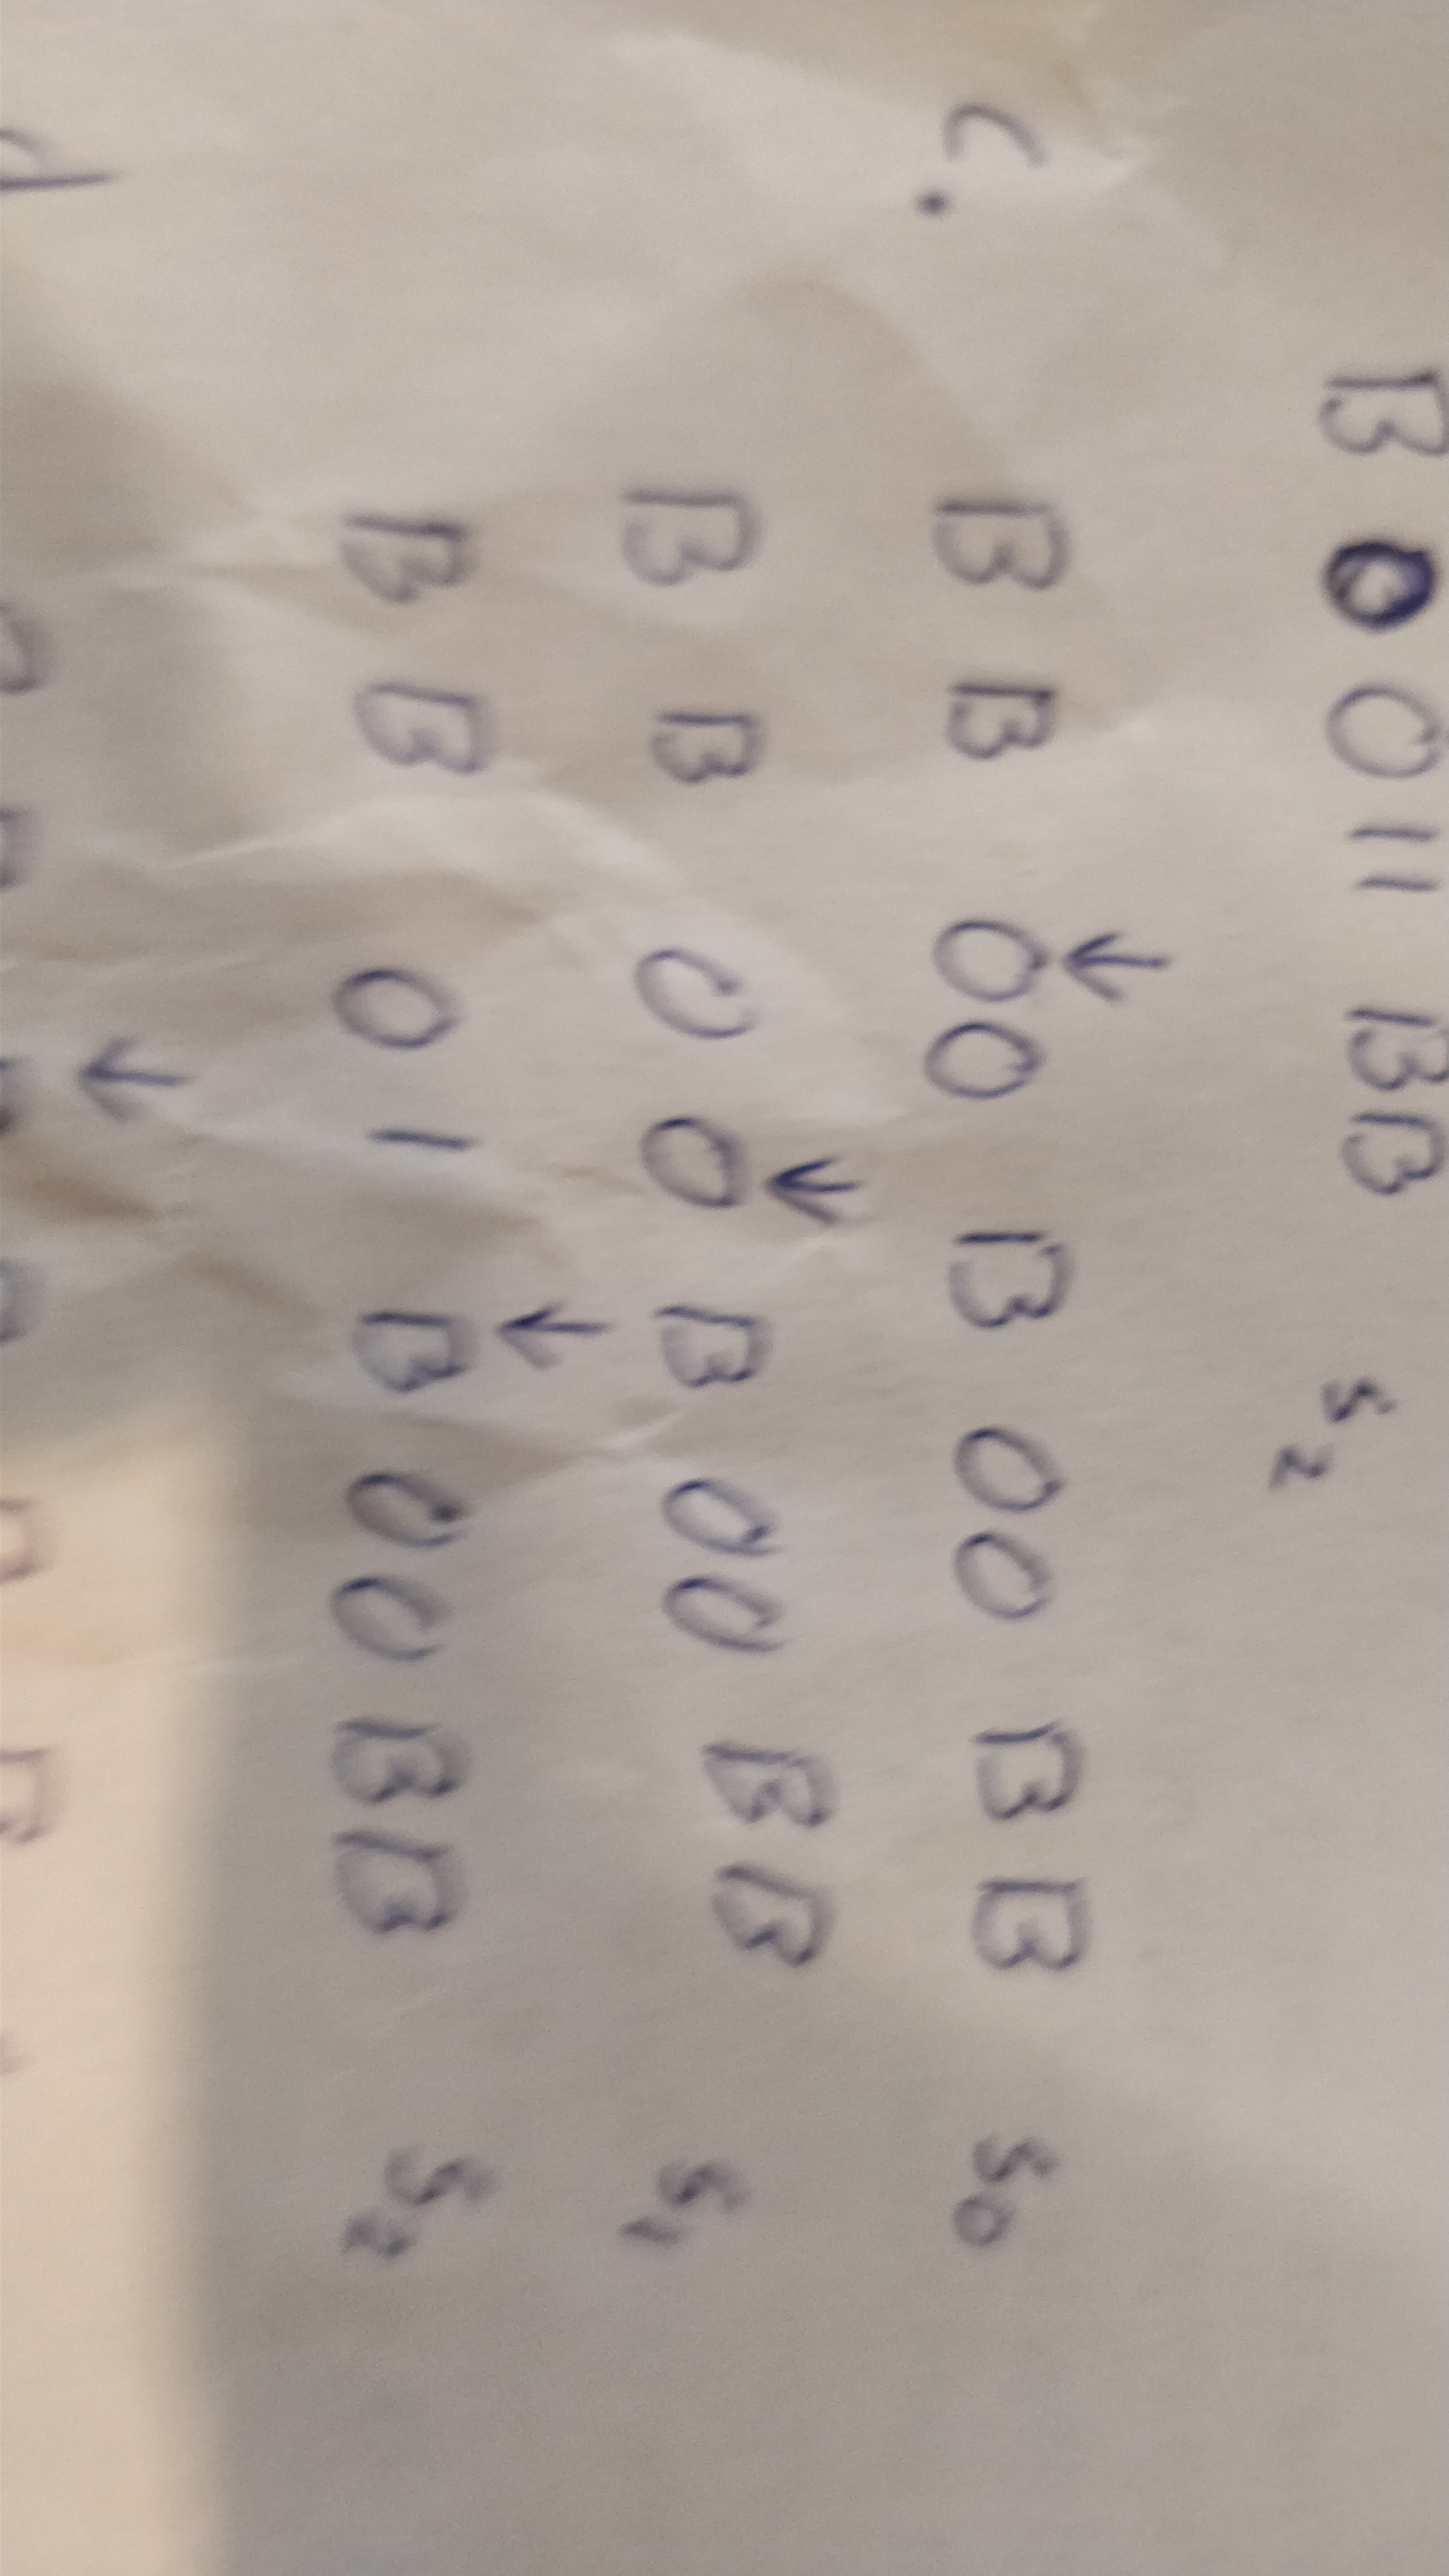 B 0 0 1 1 B B s2
↓
c. B B 0 0 B 0 0 B B s0
↓
B B 0 0 B 0 0 B B s1
↓
B B 0 1 B 0 0 B B s2
↓
d